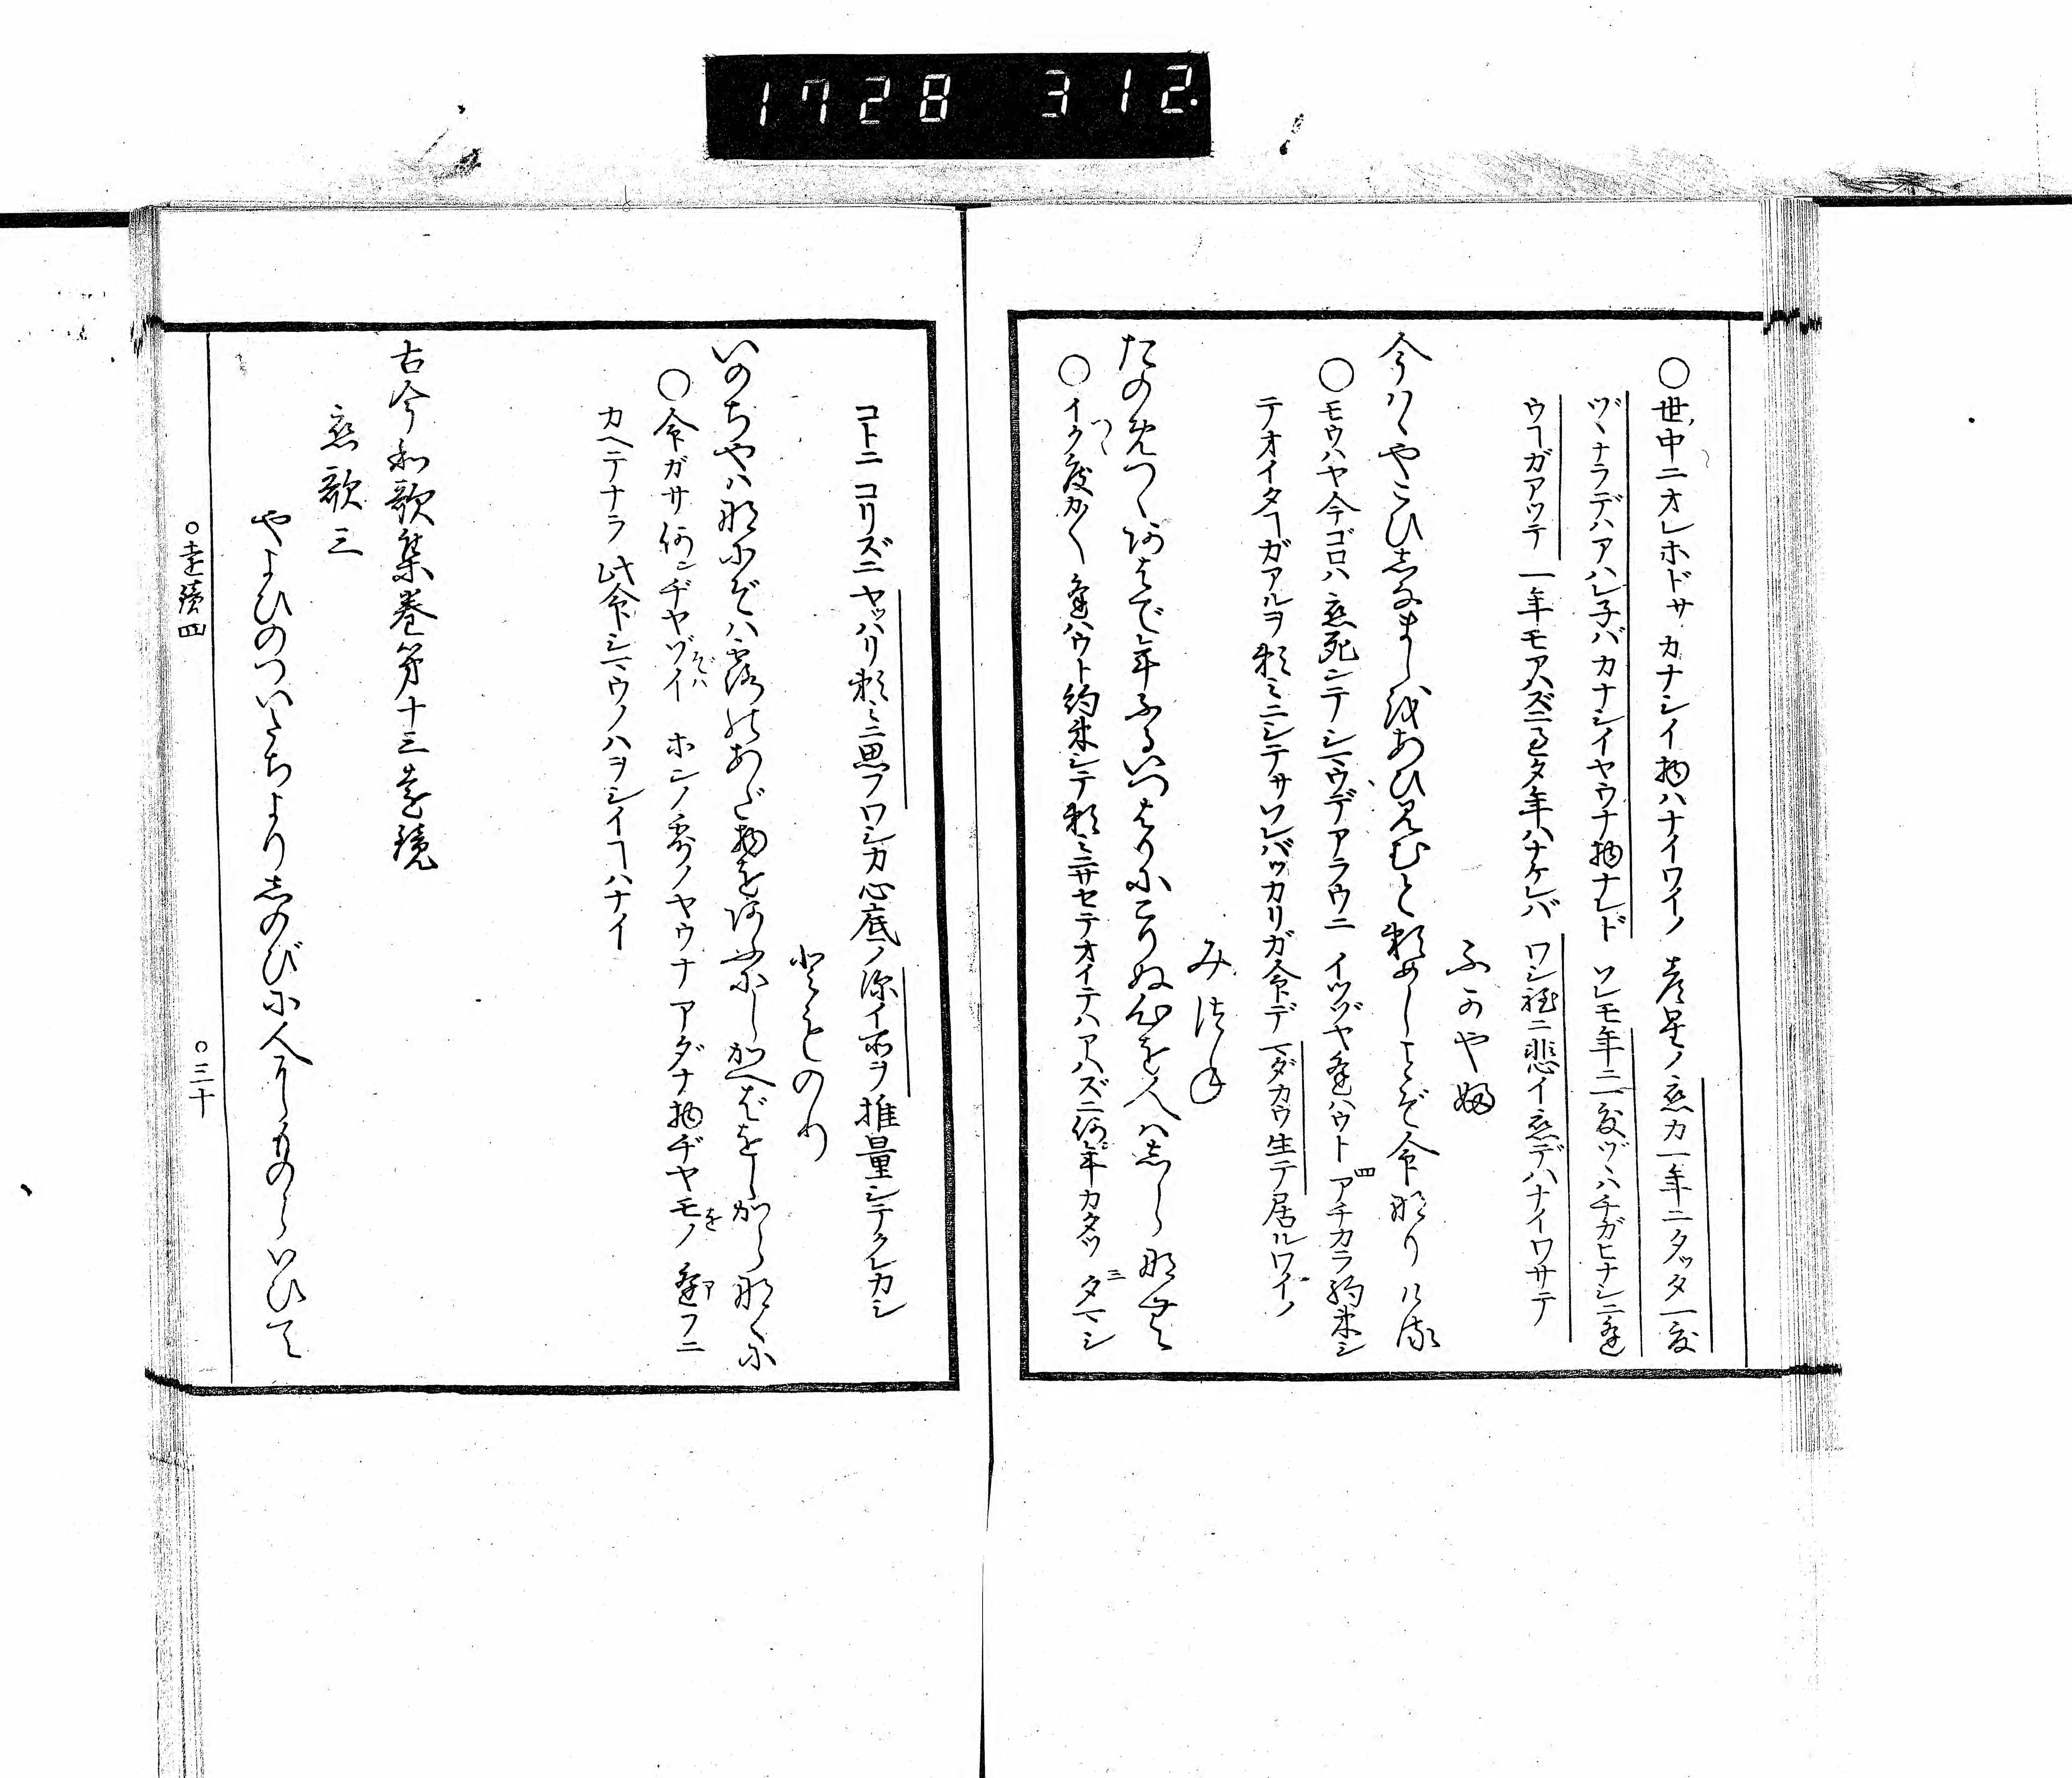 1728 312.
○世ノ中ニオレホドサ カナシイ物ハナイワイノ 彦星ノ恋カ一年ニタッタ一度
ヅヽナラデハアハレ子バカナシイヤウナ物ナレド ソレモ年ニ一度ヅヽハチガヒナシニ逢
ウヿガアツテ 一年モアハズニ過タ年ハナケレバ ワシ程ニ悲イ恋デハナイワサテ
ふかやぶ
今ははやこひしなましをあひ見むと頼めしことぞ命なりける
○モウハヤ今ゴロハ恋死シテシマウデアラウニ イツゾヤ逢ハウト四アチカラ約束シ
テオイタヿガアルヲ頼ミニシテサソレバッカリガ命デ マダカウ生テ居ルワイノ
みつね
たのめつゝあはで年ふるいつはりにこりぬ心を人はしらなむ
○イク度カ〳〵逢ハウト約束シテ頼ミニサセテオイテハアハズニ何年カタツ 三タマシ
コトニ コリズニヤッハリ頼ミニ思フワシカ心底ノ深イ所ヲ推量シテクレカシ
とものり
いのちやはなにぞは露のあだ物をあふにしかへばをしからなくに
○命ガサ何ンヂヤゾイ ホンノ露ノヤウナ アダナ物ヂヤモノ 逢フニ
カヘテナラ 此命シマウノハヲシイヿハナイ
古今和歌集巻第十三遠鏡
恋歌三
やよひのついたちよりしのびに人にものらいひて
○遠鏡四
○三十